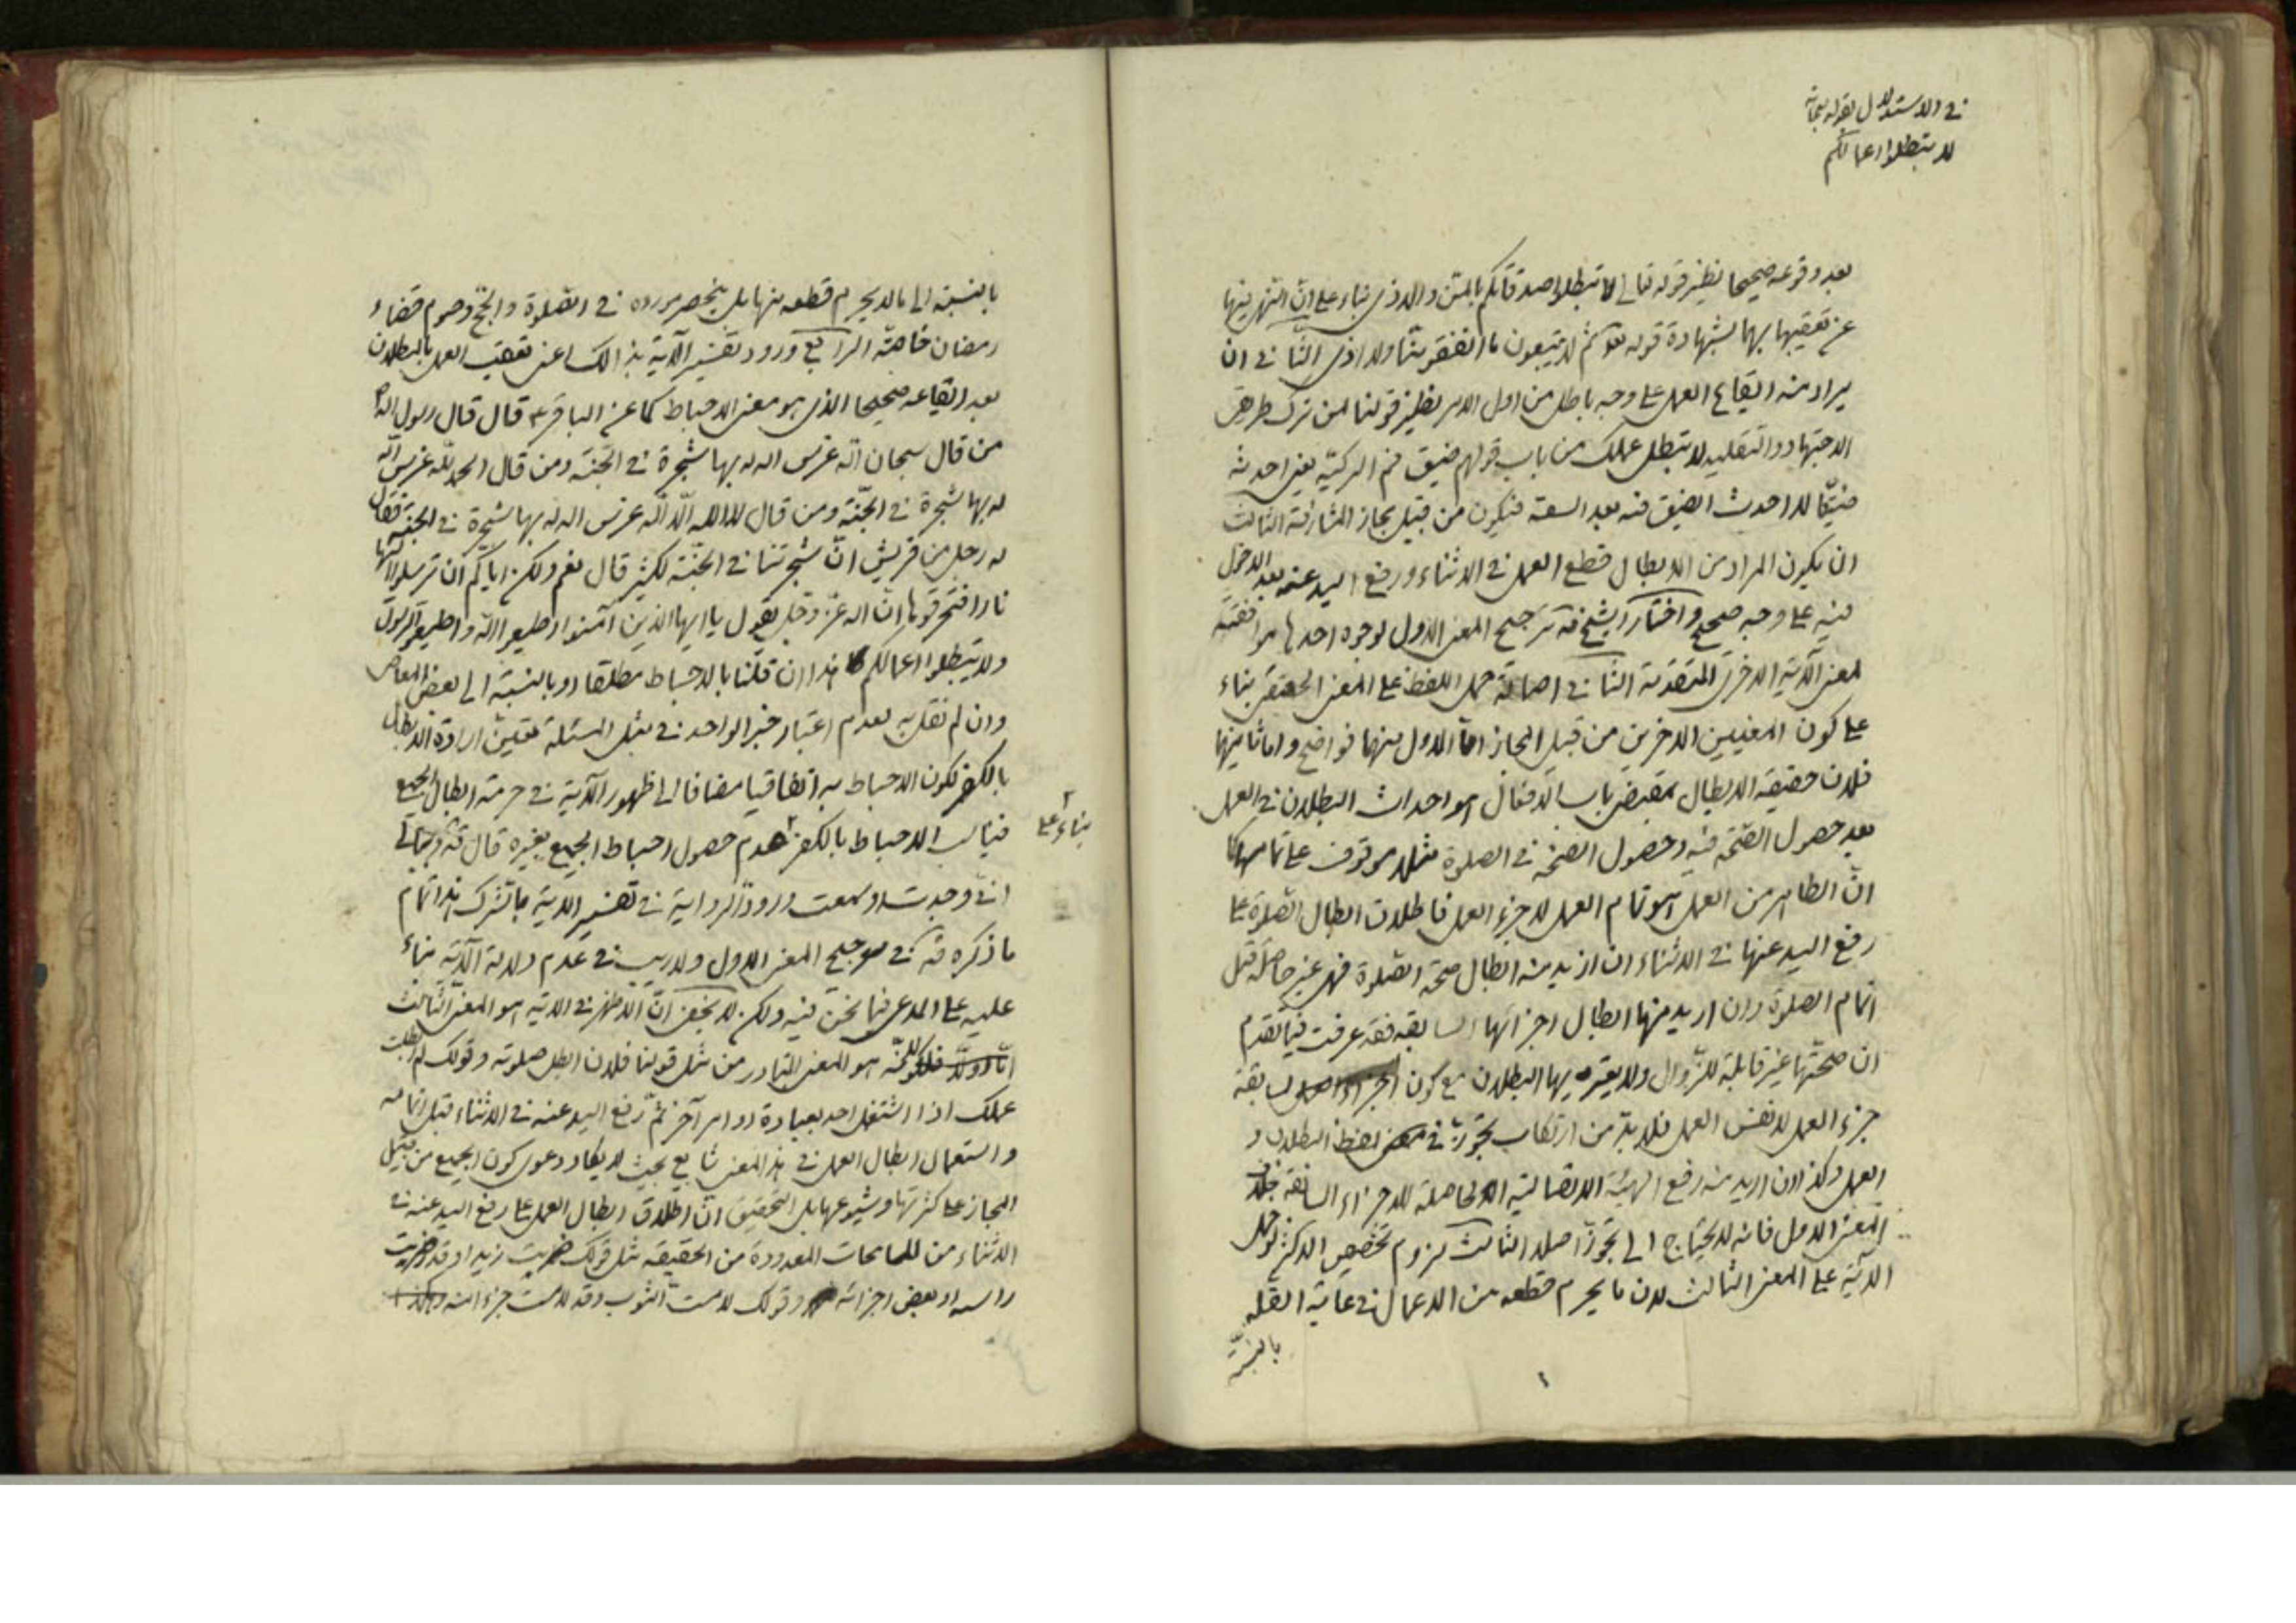 في الاستدلال بقوله سبحانه
لا تبطلوا اعمالكم
بعد وقوعه صحيحا نظير قوله تعالى لا تبطلوا صدقاتكم بالمن والاذى بناء على ان النهي فيها
عن تعقيبها بهما بشهادة قوله تعالى ثم لا يتبعون ما انفقوا منا ولا اذى الثاني ان
يراد منه ايقاع العمل على وجه باطل من اول الامر نظير قولنا لمن ترك طريقي
الاجتهاد والتقليد لا تبطل عملك من باب قولهم ضيق فم الركية يعني احدثه
ضيقا لا احدث الضيق فيه بعد السعة فيكون من قبيل مجاز المشارفة الثالث
ان يكون المراد من الابطال قطع العمل في الاثناء ورفع اليد عنه بعد الدخول
فيه على وجه صحيح واختار الشيخ قه ترجيح المعنى الاول لوجوه احدها موافقته
لمعنى الآية الاخرى المتقدمة الثاني اصالة حمل اللفظ على المعنى الحقيقي بناء
على كون المعنيين الاخرين من قبيل المجاز اما الاول منهما فواضح واما ثانيهما
فلان حقيقة الابطال بمقتضى باب الافعال هو احداث البطلان في العمل
بعد حصول الصحة فيه وحصول الصحة في الصلوة مثلا موقوف على تمامها
ان الظاهر من العمل هو تمام العمل لا جزء العمل فاطلاق ابطال الصلوة على
رفع اليد عنها في الاثناء ان اريد منه ابطال صحة الصلوة فهي غير حاصلة قبل
اتمام الصلوة وان اريد منها ابطال اجزائها السابقة فقد عرفت فيما تقدم
ان صحتها غير قابلة للزوال ولا يعتريها البطلان مع كون الجزء السابقة
جزء العمل لا نفس العمل فلا بد من ارتكاب تجوز في لفظ البطلان و
العمل وكذا ان اريد منه رفع الهيئة الاتصالية الحاصلة للاجزاء السابقة بخلاف
المعنى الاول فانه لا يحتاج الى تجوز اصلا الثالث لزوم تخصيص الاكثر لو حمل
الآية على المعنى الثالث لان ما يحرم قطعه من الاعمال في غاية القلة
بالنسبة
بالنسبة الى ما لا يحرم قطعه منها بل ينحصر مورده في الصلوة والحج وصوم قضاء
رمضان خاصة الرابع ورود تفسير الآية بذالك اعني تعقيب العمل بالبطلان
بعد ايقاعه صحيحا الذي هو معنى الاحباط كما عن الباقر ع قال قال رسول الله ص
من قال سبحان الله غرس الله له بها شجرة في الجنة ومن قال الحمد لله غرس الله
له بها شجرة في الجنة ومن قال لا اله الا الله غرس الله له بها شجرة في الجنة فقال
له رجل من قريش ان شجرتنا في الجنة لكثير قال نعم ولكن اياكم ان ترسلوا اليها
نارا فتحرقوها ان الله عز وجل يقول يا ايها الذين آمنوا اطيعوا الله واطيعوا الرسول
ولا تبطلوا اعمالكم هذا ان قلنا بالاحباط مطلقا او بالنسبة الى بعض المعاصي
وان لم نقل به لعدم اعتبار خبر الواحد في مثل المسئلة تعين ارادة الابطال
بالكفر لكون الاحباط به اتفاقيا مضافا الى ظهور الآية في حرمة ابطال الجميع
فيناسب الاحباط بالكفر عدم حصول احباط الجميع بغيره قال
بناء على
اني وجدت او سمعت ورود الرواية في تفسير الآية بالشرك هذا تمام
ما ذكره قه في ترجيح المعنى الاول ولا ريب في عدم دلالة الآية بناء
عليه على المدعى فيما نحن فيه ولكن لا يخفى ان الاظهر في الآية هو المعنى الثالث
اما اولا فلكونه هو المعنى المتبادر من مثل قولنا فلان ابطل صلوته وقولك لم ابطلت
عملك اذا اشتغل احد بعبادة او امر آخر ثم رفع اليد عنه في الاثناء قبل اتمامه
واستعمال ابطال العمل في هذا المعنى شايع بحيث لا يكاد دعوى كون الجميع من قبيل
المجاز على كثرتها وشيوعها بل التحقيق ان اطلاق ابطال العمل على رفع اليد عنه في
الاثناء من المسامحات المعدودة من الحقيقة مثل قولك ضربت زيدا وقد ضربت
راسه او بعض اجزائه وقولك لامست الثوب وقد لامست جزء منه